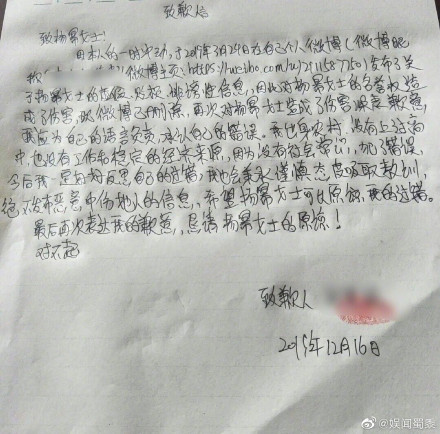 致歉信
致杨幂女士：
因本人的一时冲动，于2019年3月29日在自己个人微博（微博昵
称 微博主页https://weibo.com/u/2115877260）发布了关
于杨幂女士的 信息，因此对杨幂女士的名誉权造
成了伤害，此微博已删除，再次对杨幂女士造成了伤害 歉意，
我应为自己的语言负责，承认自己的错误。我出身农村，没有上过高
中，也没有工作和稳定的经济来源，因为没有社会常识，犯了错误，
今后我一定 反思自己的过错，我也会秉承谨慎态度吸取教训，
绝不发布恶意中伤他人的信息，希望杨幂女士可以原谅我的过错。
最后再次表达我的歉意，恳请杨幂女士的原谅！
对不起
致歉人
2019年12月16日
@娱闻蜀黍